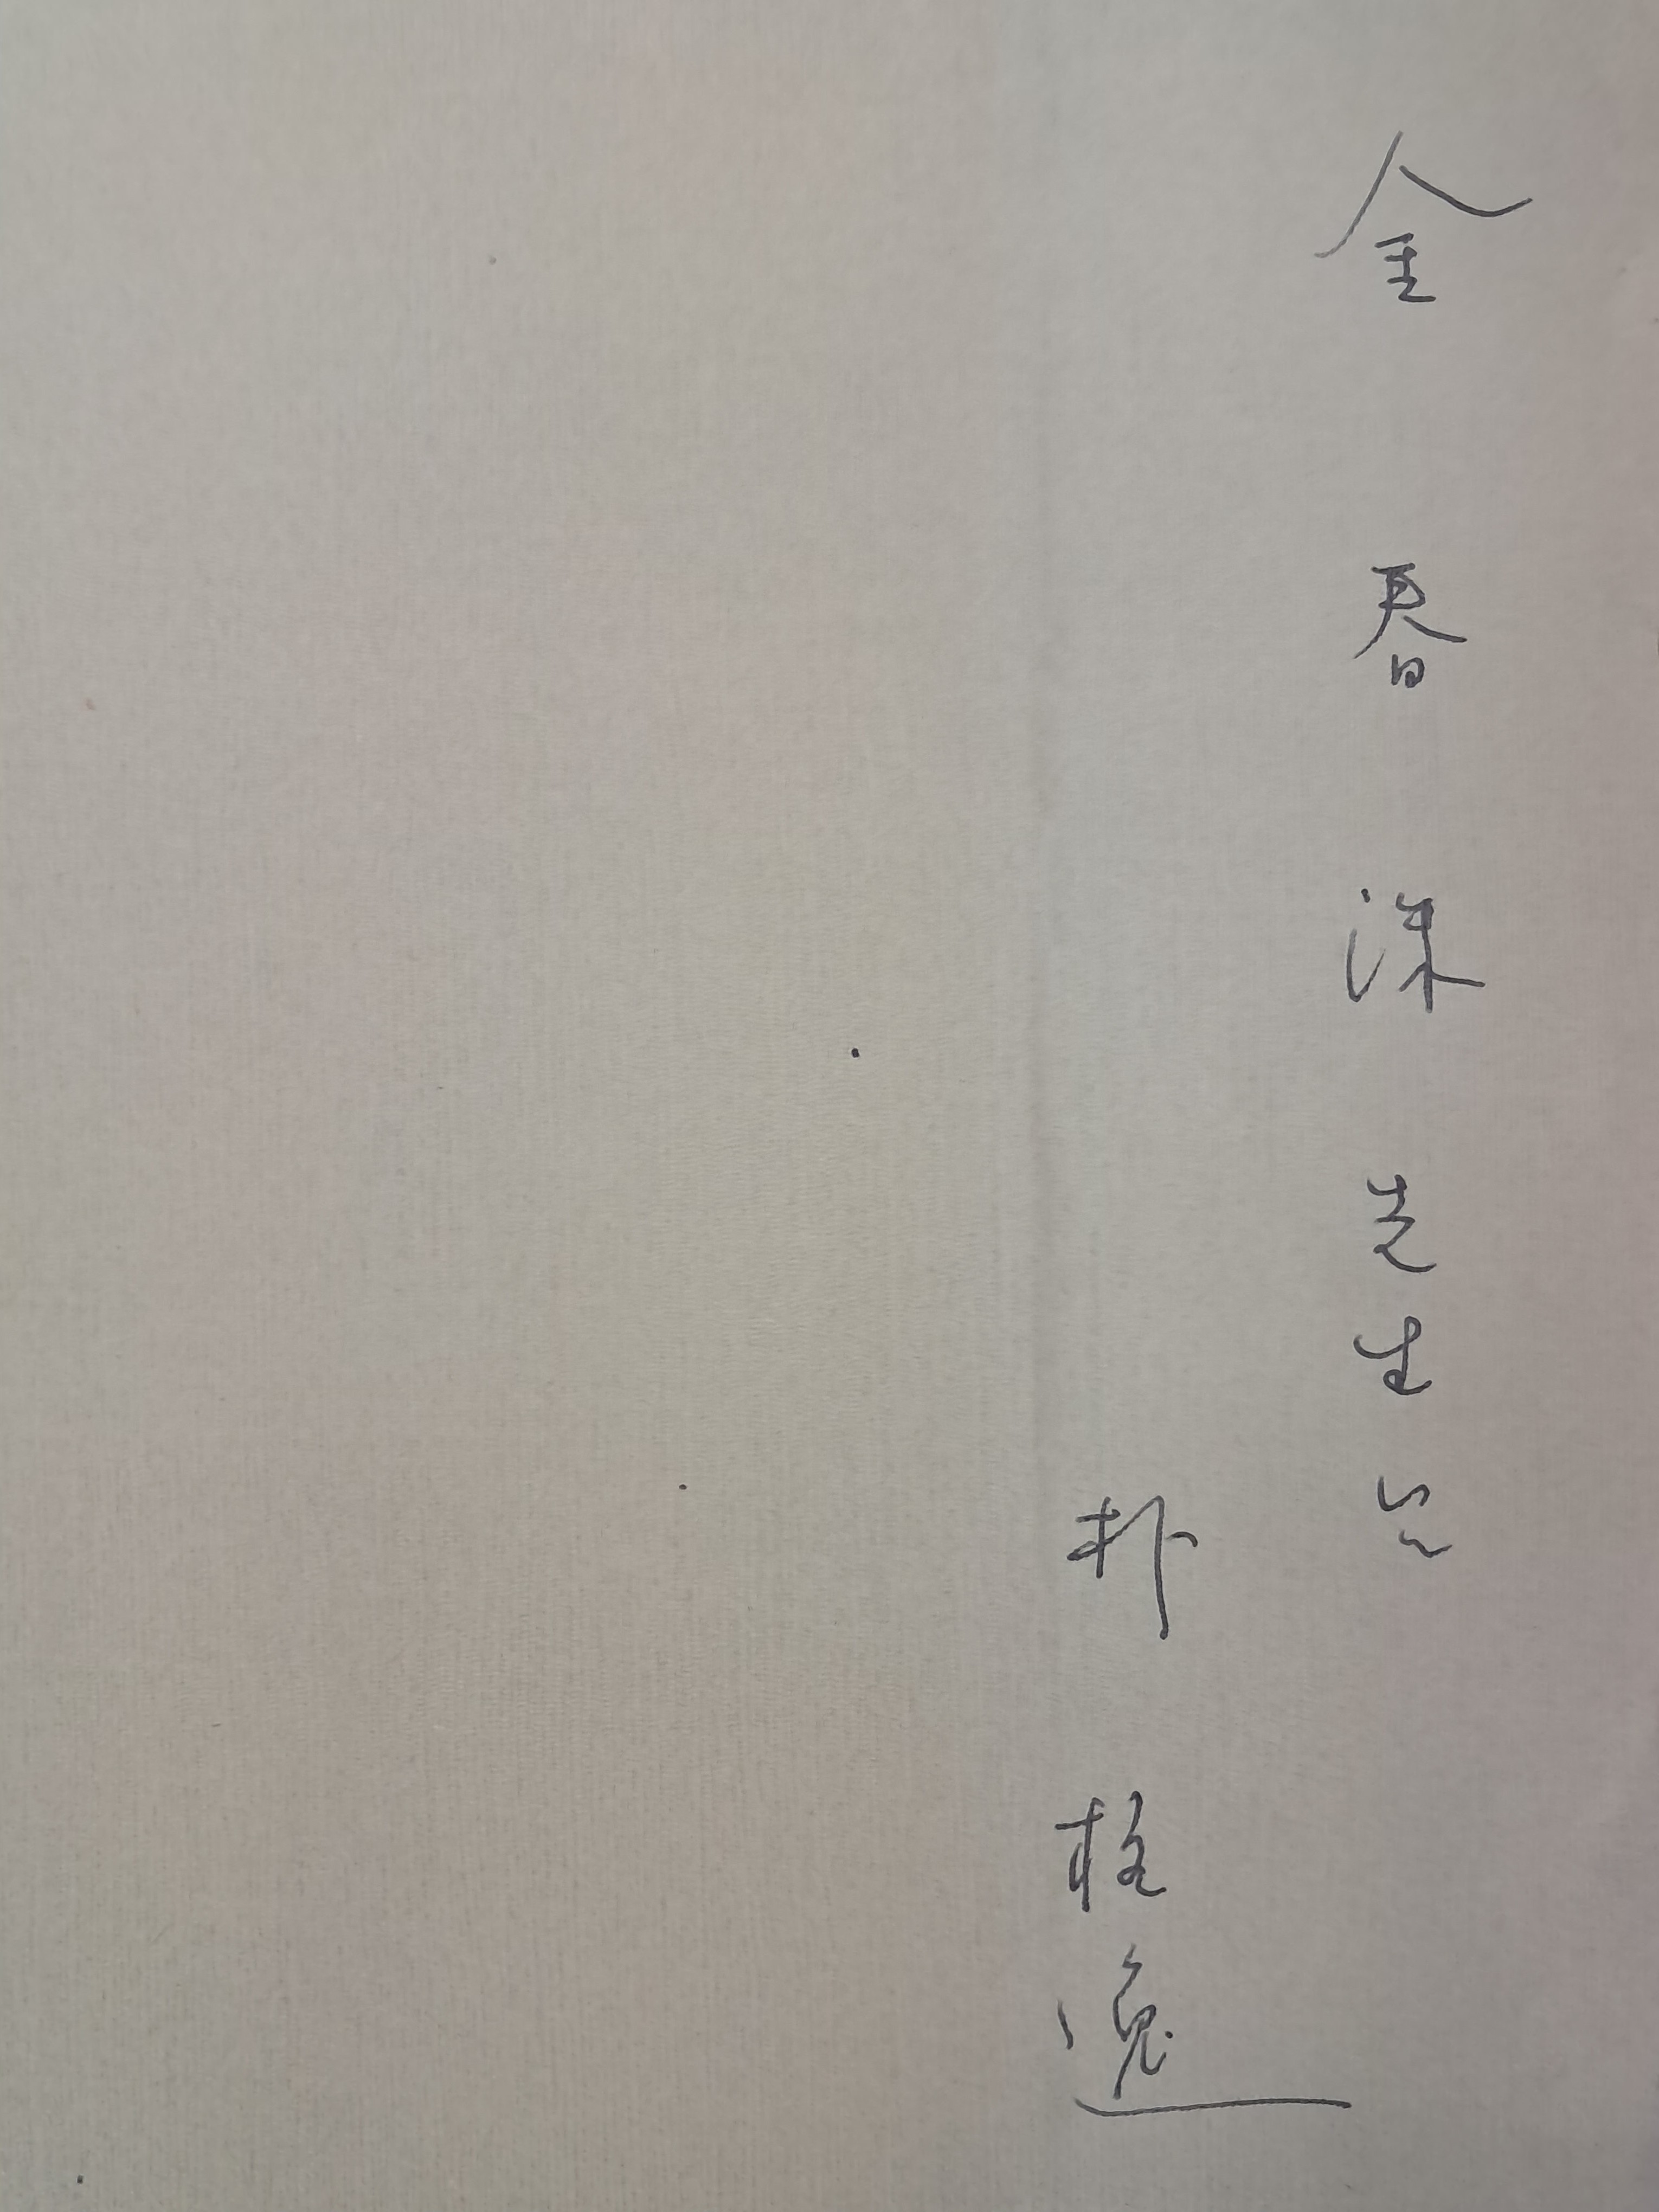 金春洙先生
朴柱逸